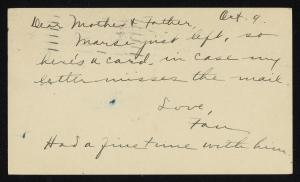 Dear Mother & Father, Oct. 9.
Marse just left, so
here's a card in case my
letter misses the mail.
Love,
Fan
Had a fine time with him